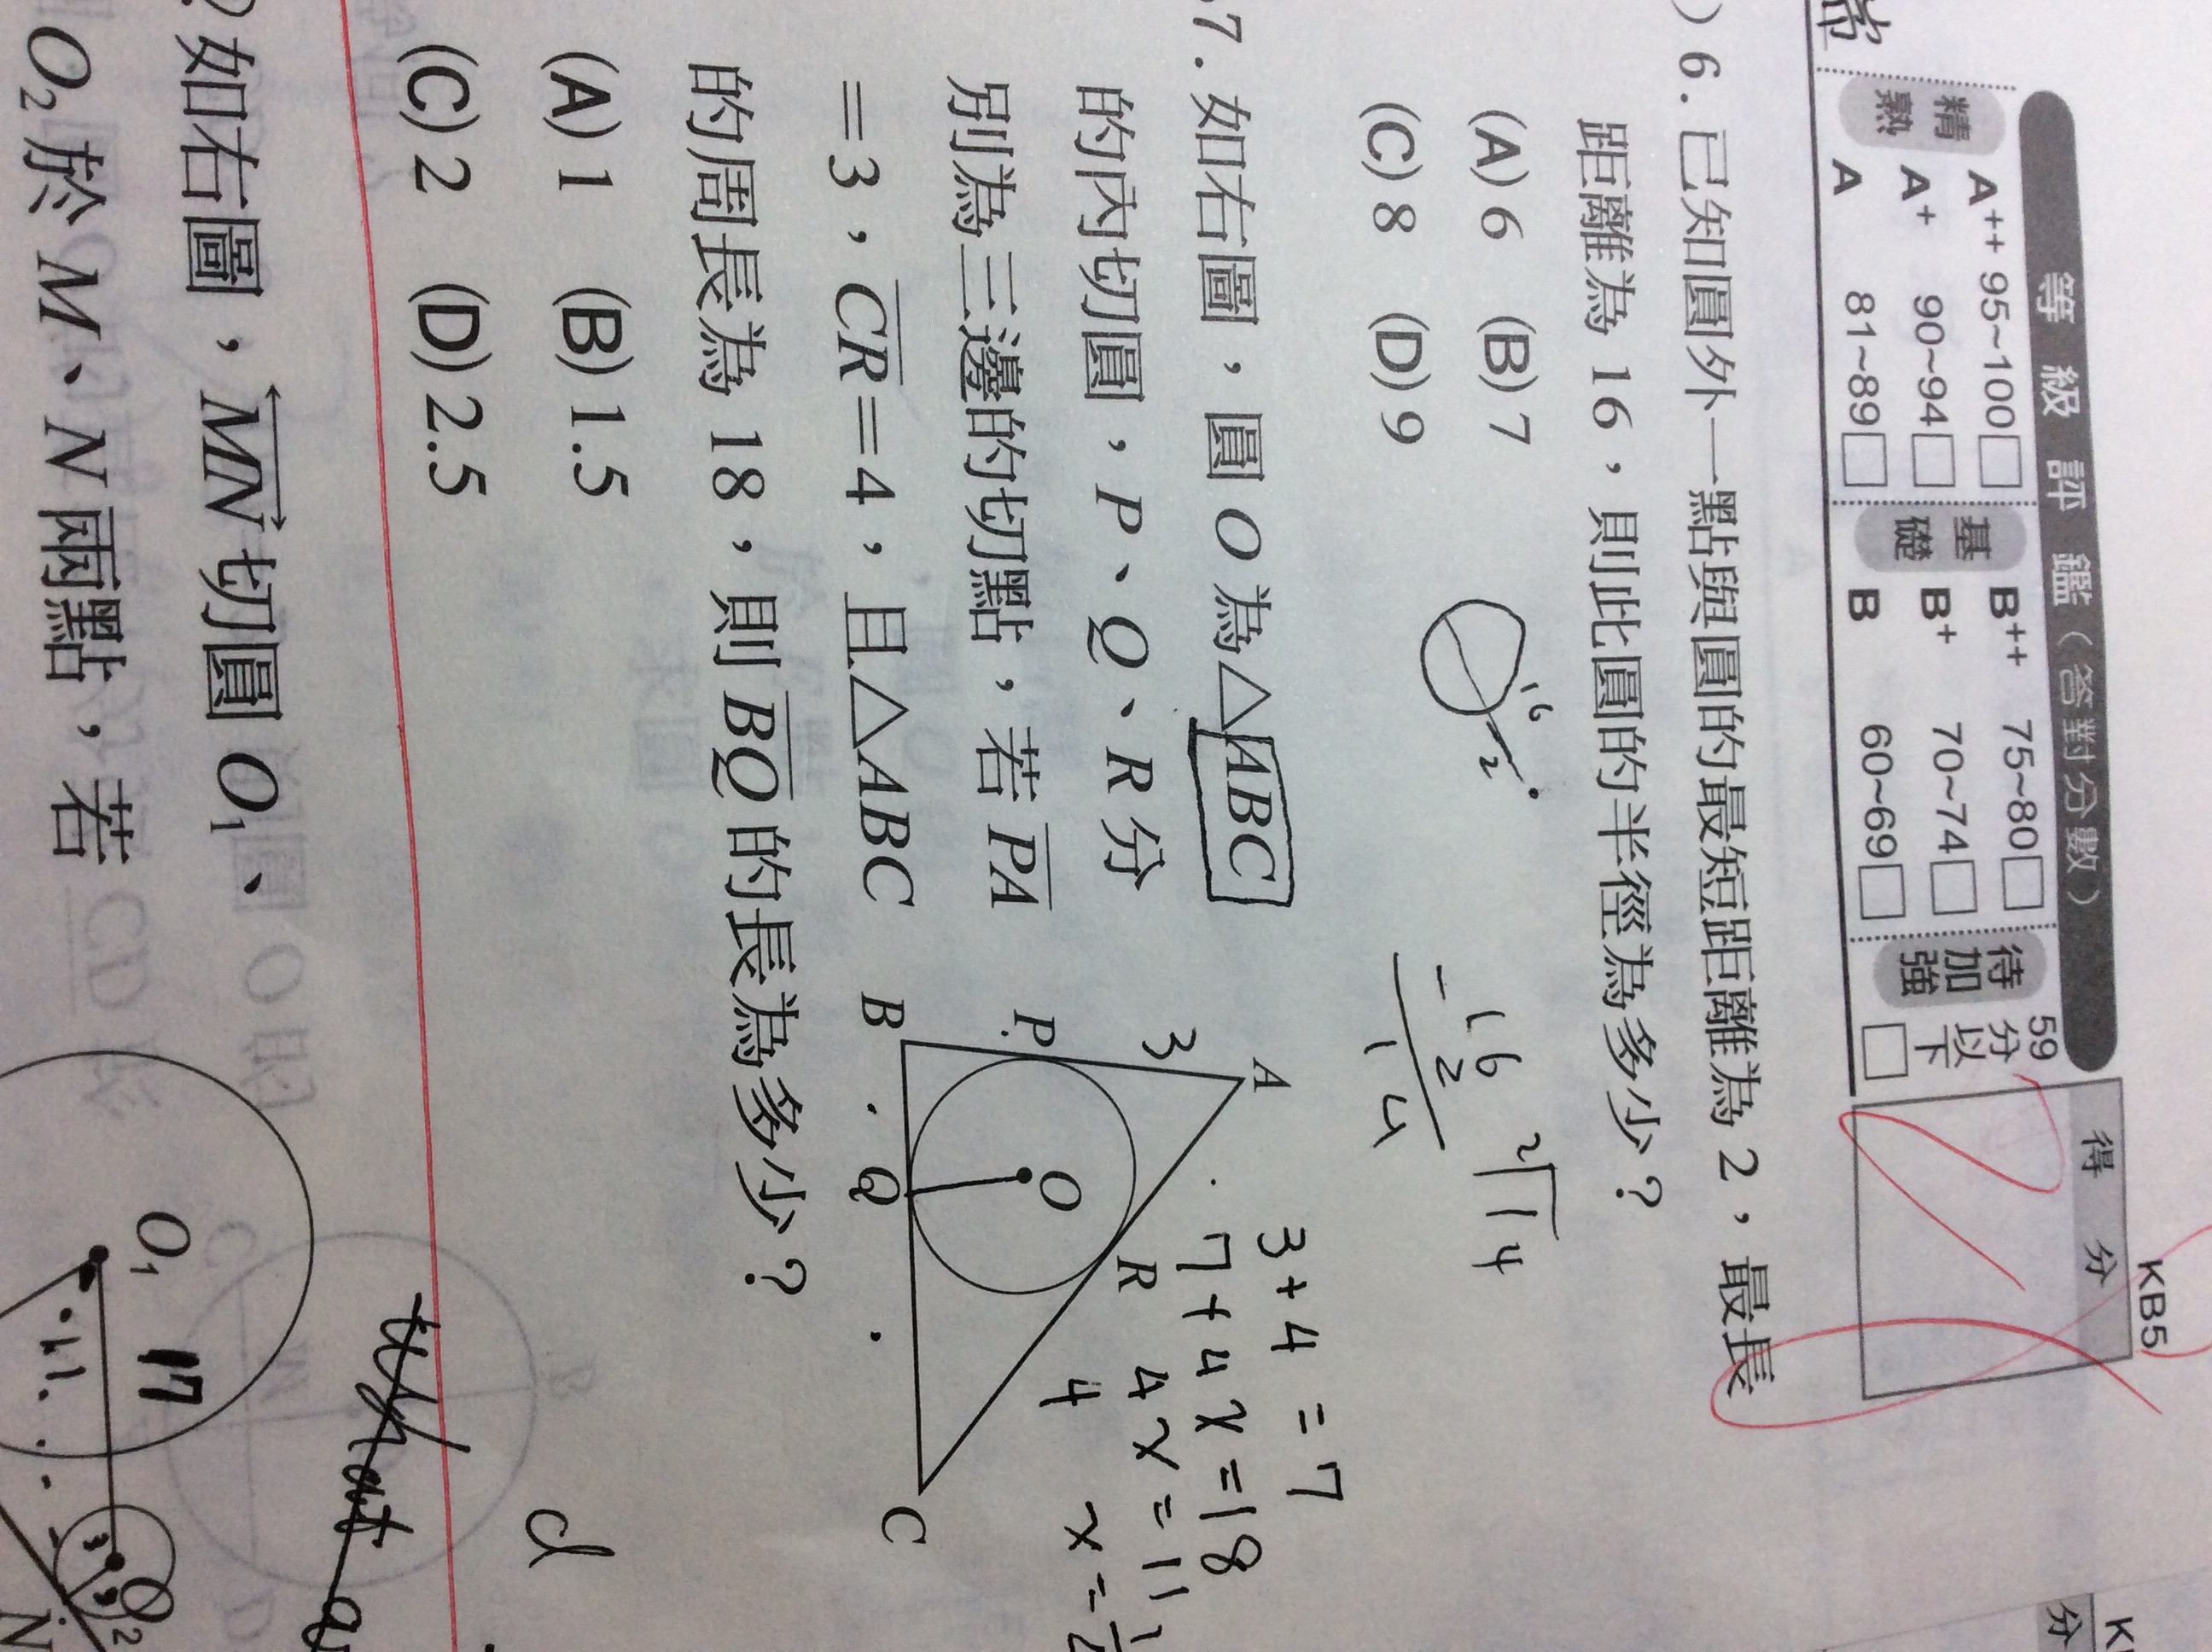 KB5
等級評鑑(答對分數)
得分
精熟
A++ 95~100□
A+ 90~94□
A 81~89□
基礎
B++ 75~80□
B+ 70~74□
B 60~69□
待加強
59分以下
□
)6.已知圓外一點與圓的最短距離為2,最長
距離為16,則此圓的半徑為多少?
(A)6 (B)7
(C)8 (D)9
16
2
16
-2
14
2 14
7.如右圖,圓O為△ABC
的內切圓,P、Q、R分
別為三邊的切點,若PA
=3,CR=4,且△ABC
的周長為18,則BQ的長為多少?
(A)1 (B)1.5
(C)2 (D)2.5
A
3
P
B
O
Q
R
4
C
3+4=7
7+4x=18
4x=11
x=
d
如右圖,MN切圓O1、
O2於M、N兩點,若
O1
17
O2
N